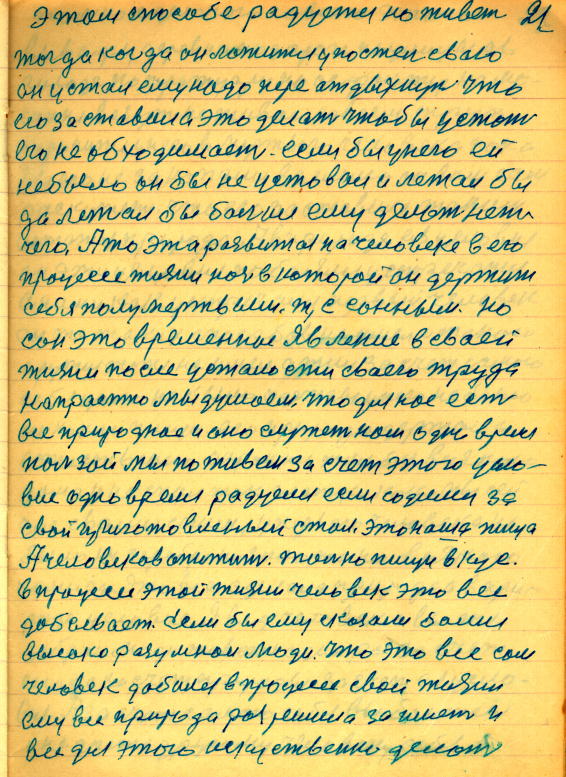 Этом способе радуется но живет 21
тогда когда он ложится упостел своего
он устал ему надо пере отдыхнут что
его заставила это делат чтобы устат
Его не обходимает. если бы унего ей
небыло он бы не уставал и летал бы
да летал бы бал он ему делат нет
чего. А то эта развитая на человеке в его
процессе жизни ноя в которой он держит
себя полумертвым. т, с сонным. Но
сон это временное явление в своей
жизни после усталости своего труда
напрастно мы думаем, что для нас ест
все природное и оно служет нам одно время
ползой мы поживем за счет этого усло-
вие одно время радуемся если содимся за
свой приготовленный стол. это наша пища
А человеков опитит. толко пищи вкус.
в процессе этой жизни человек это все
добывает. Если бы ему сказали более
высоко разумнои люди. что это все сам
человек добился в процессе своей жизни
ему все природа разрешила заимет и
все для этого искуственно делат